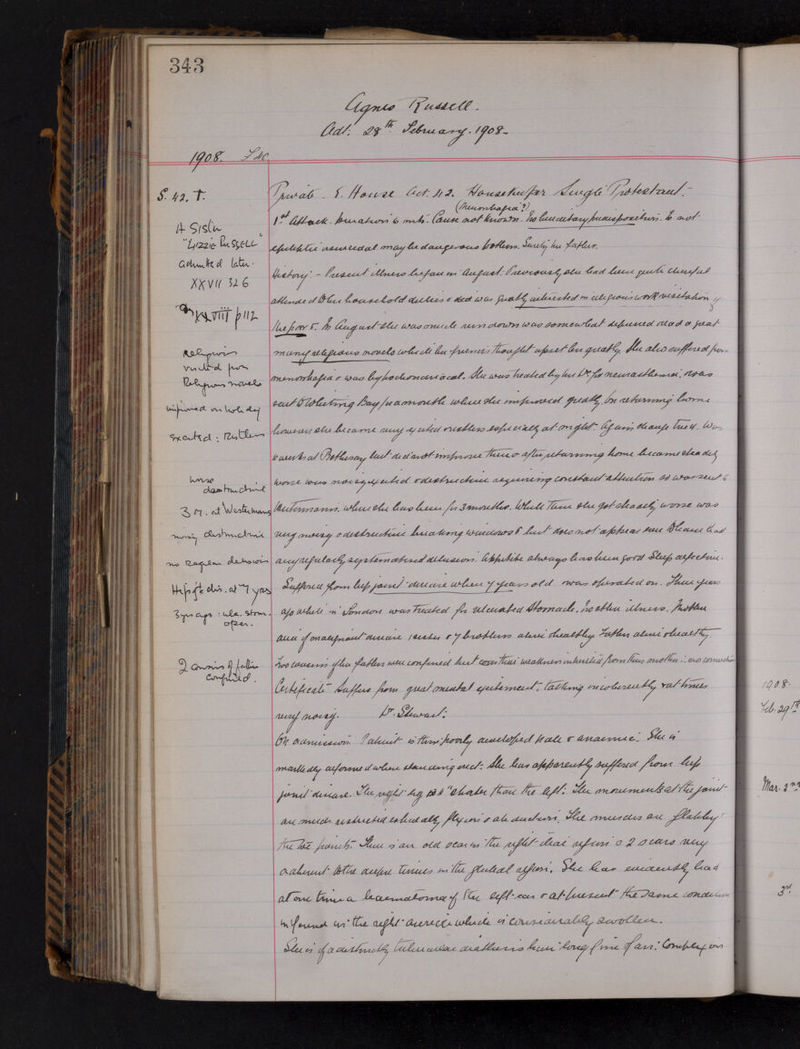 343
Agnes Russell.
Adt. 28th February. 1908-
1908.
S. 42. T.
Private. E. House Aet. 42. Housekeeper Single Protestant.
(Menorrhagia?)
1st Attack. Duration 6 mths. Cause not known. No hereditary predisposition. Is not
A Sister
"Lizzie Russell"
admitted later.
XXVII 326
XXVIII p112
epileptic or suicidal may be dangerous to others. Surety her father.
History:- Present illness began in August. Previously she had been quite cheerful
attended to her household duties & was greatly interested in religious work visitation of
the poor &. In August she was much run down was somewhat depressed read a great
Religious
Religious novels
many religious novels which her friends thought upset her greatly. She also suffered from
menorrhagia & was hypochondriacal. She was treated by her Dr. for neurasthenia, & was
improved on holiday
sent to Whiting Bay for a month where she improved greatly. On returning home
Excited: Restless
however she became very excited & restless especially at night. Again change tried. Was
4 weeks at Rothesay but did not improve there & after returning home became steadily
worse
destructive
worse was noisy excited & destructive requiring constant attention so was sent to
3 m. at Westermans
Westermains. where she has been for 3 months. While there she got steadily worse was
noisy destructive
very noisy & destructive breaking windows & but does not appear ever to have had
no regular delusions
any regularly systematised delusions. Appetite always has been good Sleep defective.
Hip jt dis. at 7 yrs
Suffered from hip joint disease when 7 years old & was operated on. Three years
3 yrs ago: ulc. stom. oper.
ago while in London was treated for ulcerated Stomach. No other illness. Mother
died of malignant disease, sister & 7 brothers alive & healthy Father alive & healthy.
2 cousins of father confined.
Two cousins of her father were confined but
Certificate Suffers from great mental excitement, talking incoherently & at times
very noisy. Dr. Stewart.
On admission Patient is thin poorly developed pale & anaemic. She is
markedly deformed when standing erect. She has apparently suffered from hip
joint disease. The right leg is 4" shorter than the left. The movements at the joint
are much restricted especially flexion & abduction. The muscles are flabby
There is an old scar in the right iliac region & 2 scars very
adherent to the deeper tissues in the gluteal region. She has evidently had
at one time a haematoma of the left ear & at present the same condition
is found in the right auricle which is considerably swollen.
She is of a distinctly tubercular diathesis
1908.
Feb. 29th
Mar. 2nd
3rd